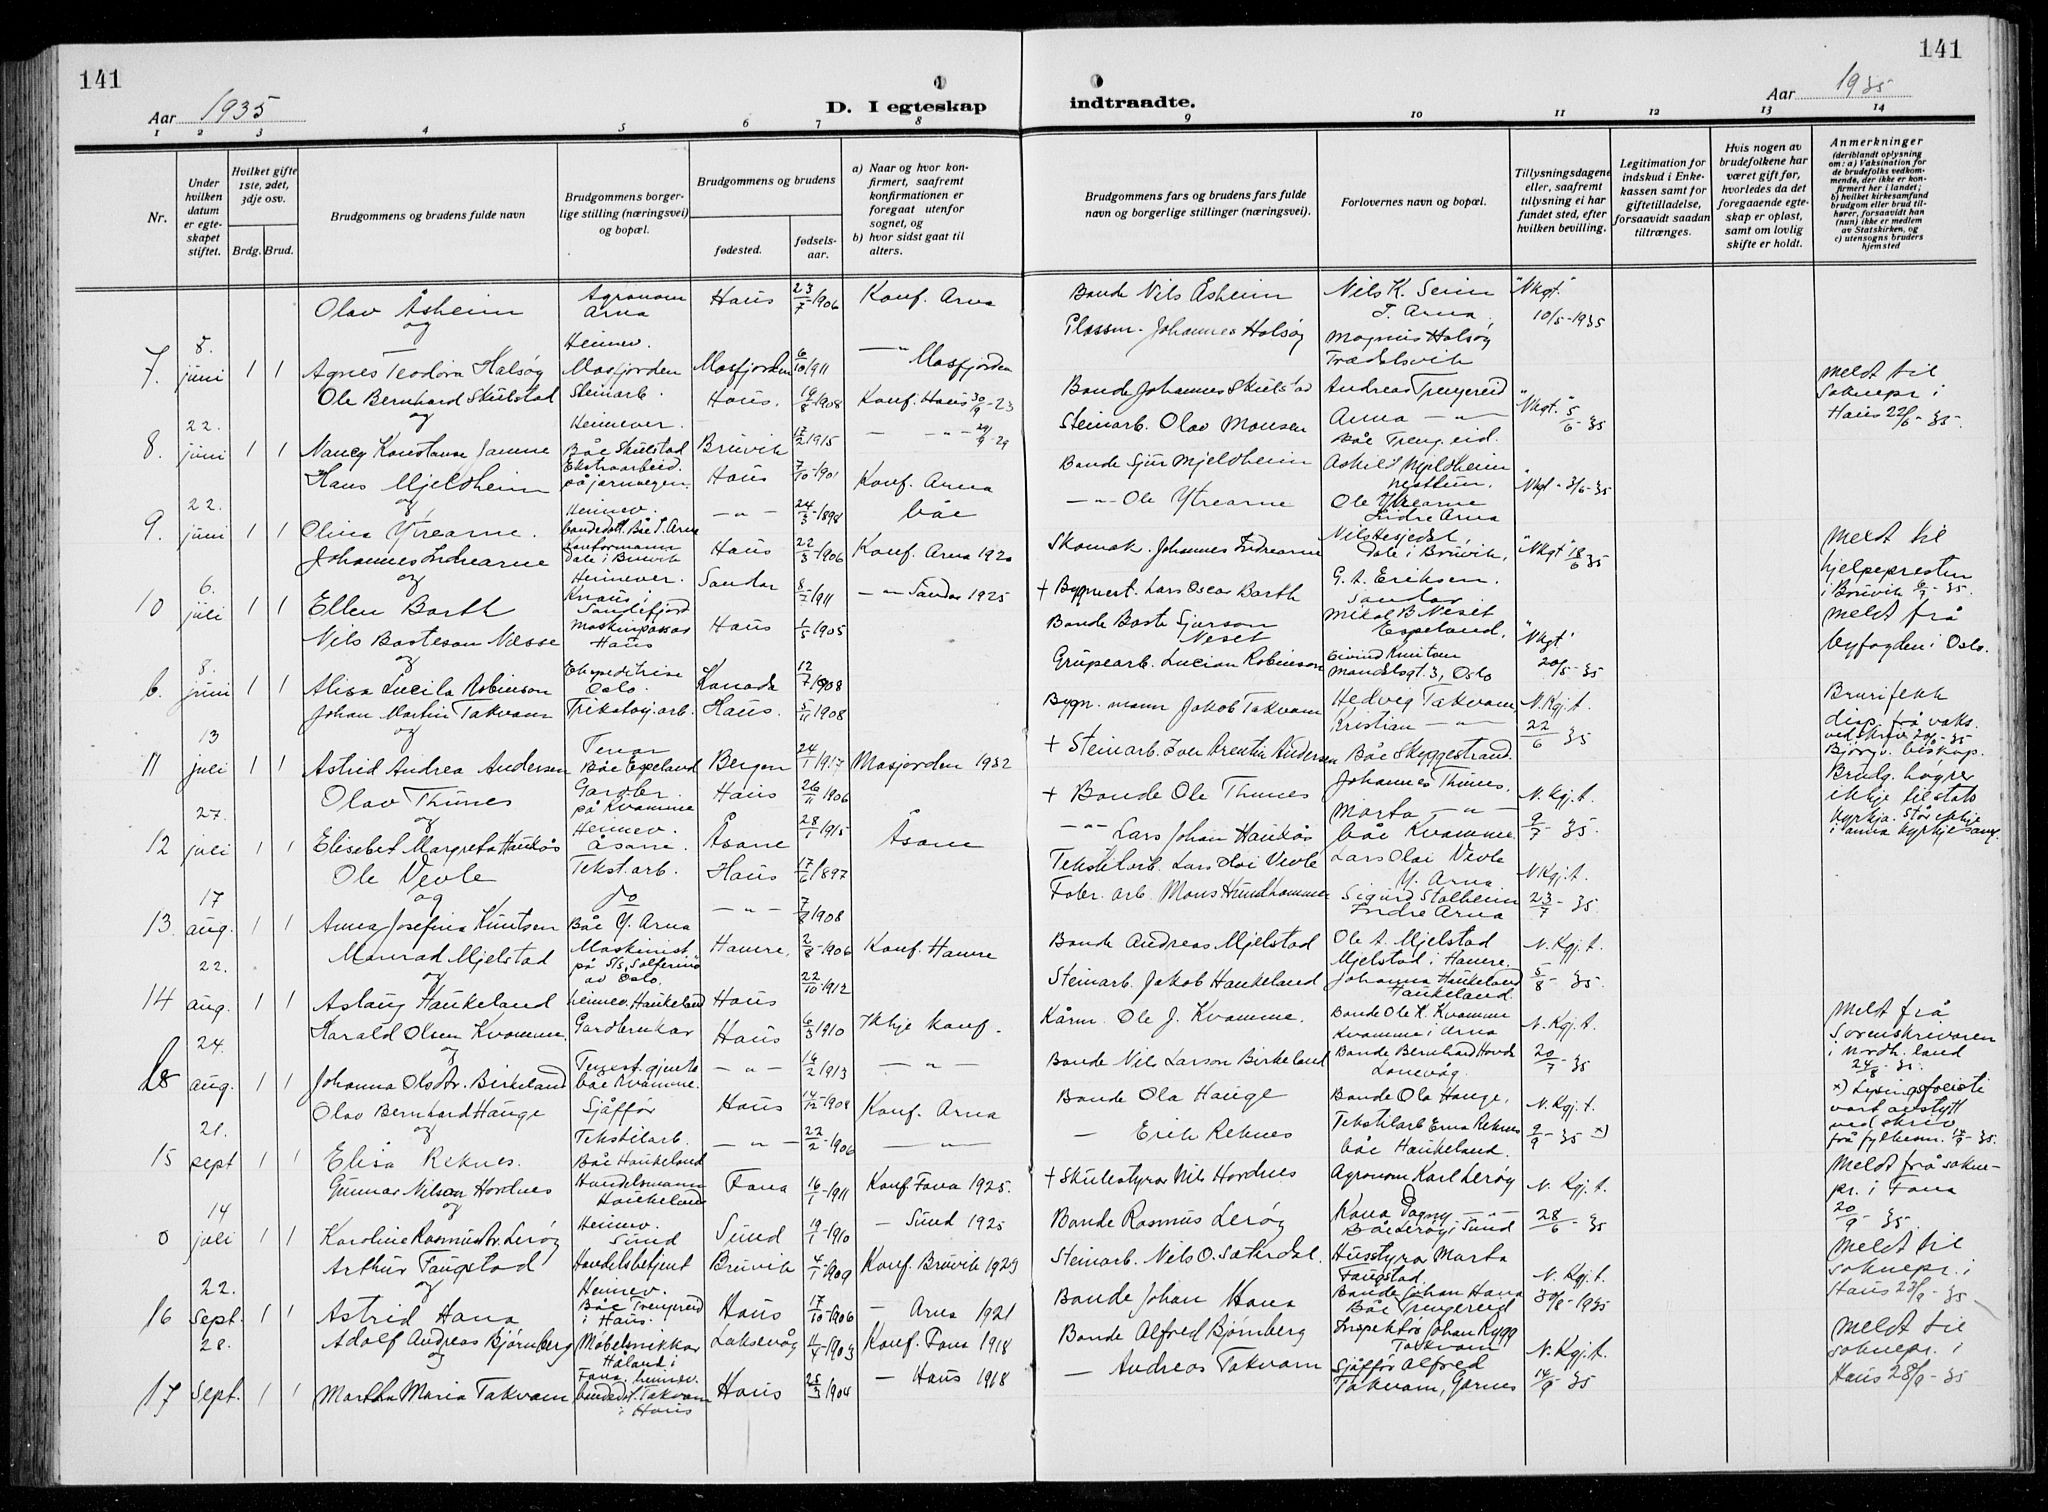 141
141
Aar 1935
D. I egteskap
indtraadte.
Aar 1935
1 2 3 4 5 6 7 8 9 10 11 12 13 14
Nr.
Under hvilken datum er egteskapet stiftet.
Hvilket gifte 1ste, 2det, 3dje osv.
Brdg. Brud.
Brudgommens og brudens fulde navn
Brudgommens borgerlige stilling (næringsvei) og bopæl.
Brudgommens og brudens
fødested.
fødselsaar.
a) Naar og hvor konfirmert, saafremt konfirmationen er foregaat utenfor sognet, og
b) hvor sidst gaat til alters.
Brudgommens fars og brudens fars fulde navn og borgerlige stillinger (næringsvei).
Forlovernes navn og bopæl.
Tillysningsdagene eller, saafremt tillysning ei har fundet sted, efter hvilken bevilling.
Legitimation for indskud i Enkekassen samt for giftetilladelse, forsaavidt saadan tiltrænges.
Hvis nogen av brudefolkene har været gift før, hvorledes da det foregaaende egteskap er opløst, samt om lovlig skifte er holdt.
Anmerkninger
(deriblandt oplysning om: a) Vaksination for de brudefolks vedkommende, der ikke er konfirmert her i landet; b) hvilket kirkesamfund brudgom eller brud tilhører, forsaavidt han (hun) ikke er medlem av Statskirken, og c) utensogns bruders hjemsted
7. 8. juni 1 1 Olav Åsheim og Agnes Teodora Halsøy
Agronom Arna Heimev. Masfjorden
Haus 23/7 1906 Konf. Arna
Masfjorden 6/10 1911 — " — Masfjorden
Bonde Nils Åsheim
Johannes Halsøy
Nils K. Seim I. Arna. Magnus Halsøy
"Nkgt." 10/5 - 1935
8. 22. juni 1 1 Ole Bernhard Skulstad og Nancy Konstanse Janne
Steinarb. Heimever. Båe Skulstad
Haus. 19/8 1908 Konf. Haus 30/9 - 23
Bruvik 17/2 1915 — " — 29/9 - 29
Bonde Johannes Skulstad
Steinarb. Olav Monsen
Andreas Trengereid Arna — " — Båe Treng.eid.
"Nkgt." 5/6 - 35
Meldt til soknepr. i Haus 22/6 - 35.
9. 22. juni 1 1 Hans Mjeldheim og Olina Ytrearne.
Ekstraarbeid. på jarnvegen. Heimev. bondedott. Båe I. Arna
Haus 7/10 - 1901 Konf. Arna
— " — 24/3 - 1898 båe
Bonde Sjur Mjeldheim
— " — Ole Ytrearne
Askild Mjeldheim Nesttun. Ole Ytrearne Indre Arna
"Nkgt - 3/6 - 35
10 6. juli 1 1 Johannes Indrearne og Ellen Barth
Kontormann Dale i Bruvik Heimever.
Haus 22/3 - 1906 Konf. Arna 1920
Sandar 8/2 - 1911 — " — Sandar 1925
Skomak. Johannes Indrearne
+ Lars Oscar Barth
Nils Hesjedal, Dale i Bruvik. G. A. Eriksen. Sandar
"Nkgt" 18/6 35
Meldt til hjelpepresten i Bruvik 6/7 - 35.
6. 8. juni 1 1 Nils Bastesen Nesse og Alisa Lucila Robinson
Maskinpassar Haus Oslo.
Haus 1/5 - 1905
Kanada 12/7 1908
Bonde Baste Sjurson Neset
Grupearb. Lucian Robinson
Mikal B Neset Espeland. Eivind Knutsen 3, Oslo
"Nkgt" 20/5 - 35
Meldt frå byfogden i Oslo.
11 13 juli 1 1 Johan Martin Takvam og Astrid Andrea Andersen
Trikotasj.arb. Tenar Båe Espeland
Haus. 5/11 1908
Bergen 24/1 1917 Masfjorden 1932
Bygn. mann Jakob Takvam
+ Steinarb. Iver Arentin Andersen
Hedvig Takvam Kristian — " — Båe Skyggestrand
N. Kgj. t. 22/6 35
Brurifekk disp. frå vaks. ved skriv 20/6 - 35 Bjørgv. biskop.
12 27. juli 1 1 Olav Thunes og Elisebet Margreta Haukås
Gardbr. på Kvamme Heimev. Åsane
Haus 26/11 1906
Åsane 28/1 1915 Åsane
+ Bonde Ole Thunes
— " — Lars Johan Haukås
Johannes Thunes. Marta — " — båe Kvamme
N. Kgj. t. 9/7 - 35.
Brudg. høyrer ikkje til statskyrkja. Står ikkje i anna kyrkjesamf.
13. 17 aug. 1 1 Ole Vevle og Anna Josefina Knutsen
Tekst.arb. do Båe Y. Arna
Haus 17/6 1897
— " — 7/8 1908
Tekstilarb. Lars Olai Vevle
Fabr. arb. Mons Hundhammer
Lars Olai Vevle Y. Arna. Sigurd Stalheim Indre Arna
N Kgj. t. 23/7 - 35.
14 22. aug. 1 1 Monrad Mjelstad og Aslaug Haukeland
Maskinist på S/S. "Solferino" av Oslo. heimev. Haukeland
Hamre. 2/8 - 1906 Konf. Hamre
Haus 22/10 - 1912
Bonde Andreas Mjelstad
Steinarb. Jakob Haukeland
Ole A. Mjelstad Mjelstad i Hamre. Johanna Haukeland Haukeland.
N. Kgj. t. 5/8 - 35.
24. aug. 1 1 Harald Olsen Kvamme. og Johanna Olsdtr. Birkeland
Gardbrukar båe Kvamme.
Haus 6/3 1910 Ikkje konf.
— " — 16/2 1913 — " —
Kårm. Ole J. Kvamme.
Bonde Nils Larson Birkeland
Bonde Ole K. Kvamme Kvamme i Arna Bonde Bernhard Hovda Lonevåg.
N. Kgj. t. 20/7 - 35
Meldt frå Sorenskrivaren i Nordh.land 24/8 - 35.
15 21. sept 1 1 Olav Bernhard Hauge og Elisa Reknes.
Sjåffør Tekstilarb. Båe Haukeland
Haus 14/12 - 1908 Konf. Arna
— " — 22/2 - 1906 — " —
Bonde Ola Hauge
— Erik Reknes
Bonde Ola Hauge. Tekstilarb Erna Reknes båe Haukeland.
N. Kgj. t. 9/9 - 35 x)
x) vart avstytt ved skriv frå fylkesm. 14/9 - 35.
0 14 juli 1 1 Gunnar Nilsen Hordnes og Karoline Rasmusdtr. Lerøy
Handelsmann Haukeland Heimev. Sund
Fana 16/1 - 1911 Konf Fana 1925.
Sund 19/1 - 1910 — Sund 1925
+ Skulestyrar Nils Hordnes
Bonde Rasmus Lerøy
Agronom Karl Lerøy Kona Dagny — " — Båe Lerøy i Sund
N. Kgj. t. 28/6 - 35
Meldt frå soknepr. i Fana 20/9 - 35.
16 22. sept. 1 1 Arthur Faugstad og Astrid Hana
Handelsbetjent Heimev. Båe Trengereid i Haus.
Bruvik 4/1 - 1909 Konf. Bruvik 1923
Haus 17/10 - 1906 — Arna 1921
Steinarb. Nils O. Sæterdal.
Bonde Johan Hana
Husstyra Marta Faugstad. Bonde Johan Hana Båe Trengereid
N. Kgj. t. 30/8 - 1935
Meldt til soknepr. i Haus 23/9 - 35
17 28. sept. 1 1 Adolf Andreas Bjørnberg og Martha Maria Takvam
Møbelsnikkar Håland i Fana. heimev. bondedot. Takvam i Haus
Laksevåg 11/4 - 1903 Konf. Fana 1918
Haus 25/3 1904 — Haus 1918
Bonde Alfred Bjørnberg
— Andreas Takvam
Inspektør Johan Rygg Takvam Sjåffør Alfred Takvam, Garnes
N. Kgj. t. 14/9 - 35
Meldt til soknepr. i Haus 28/9 - 35